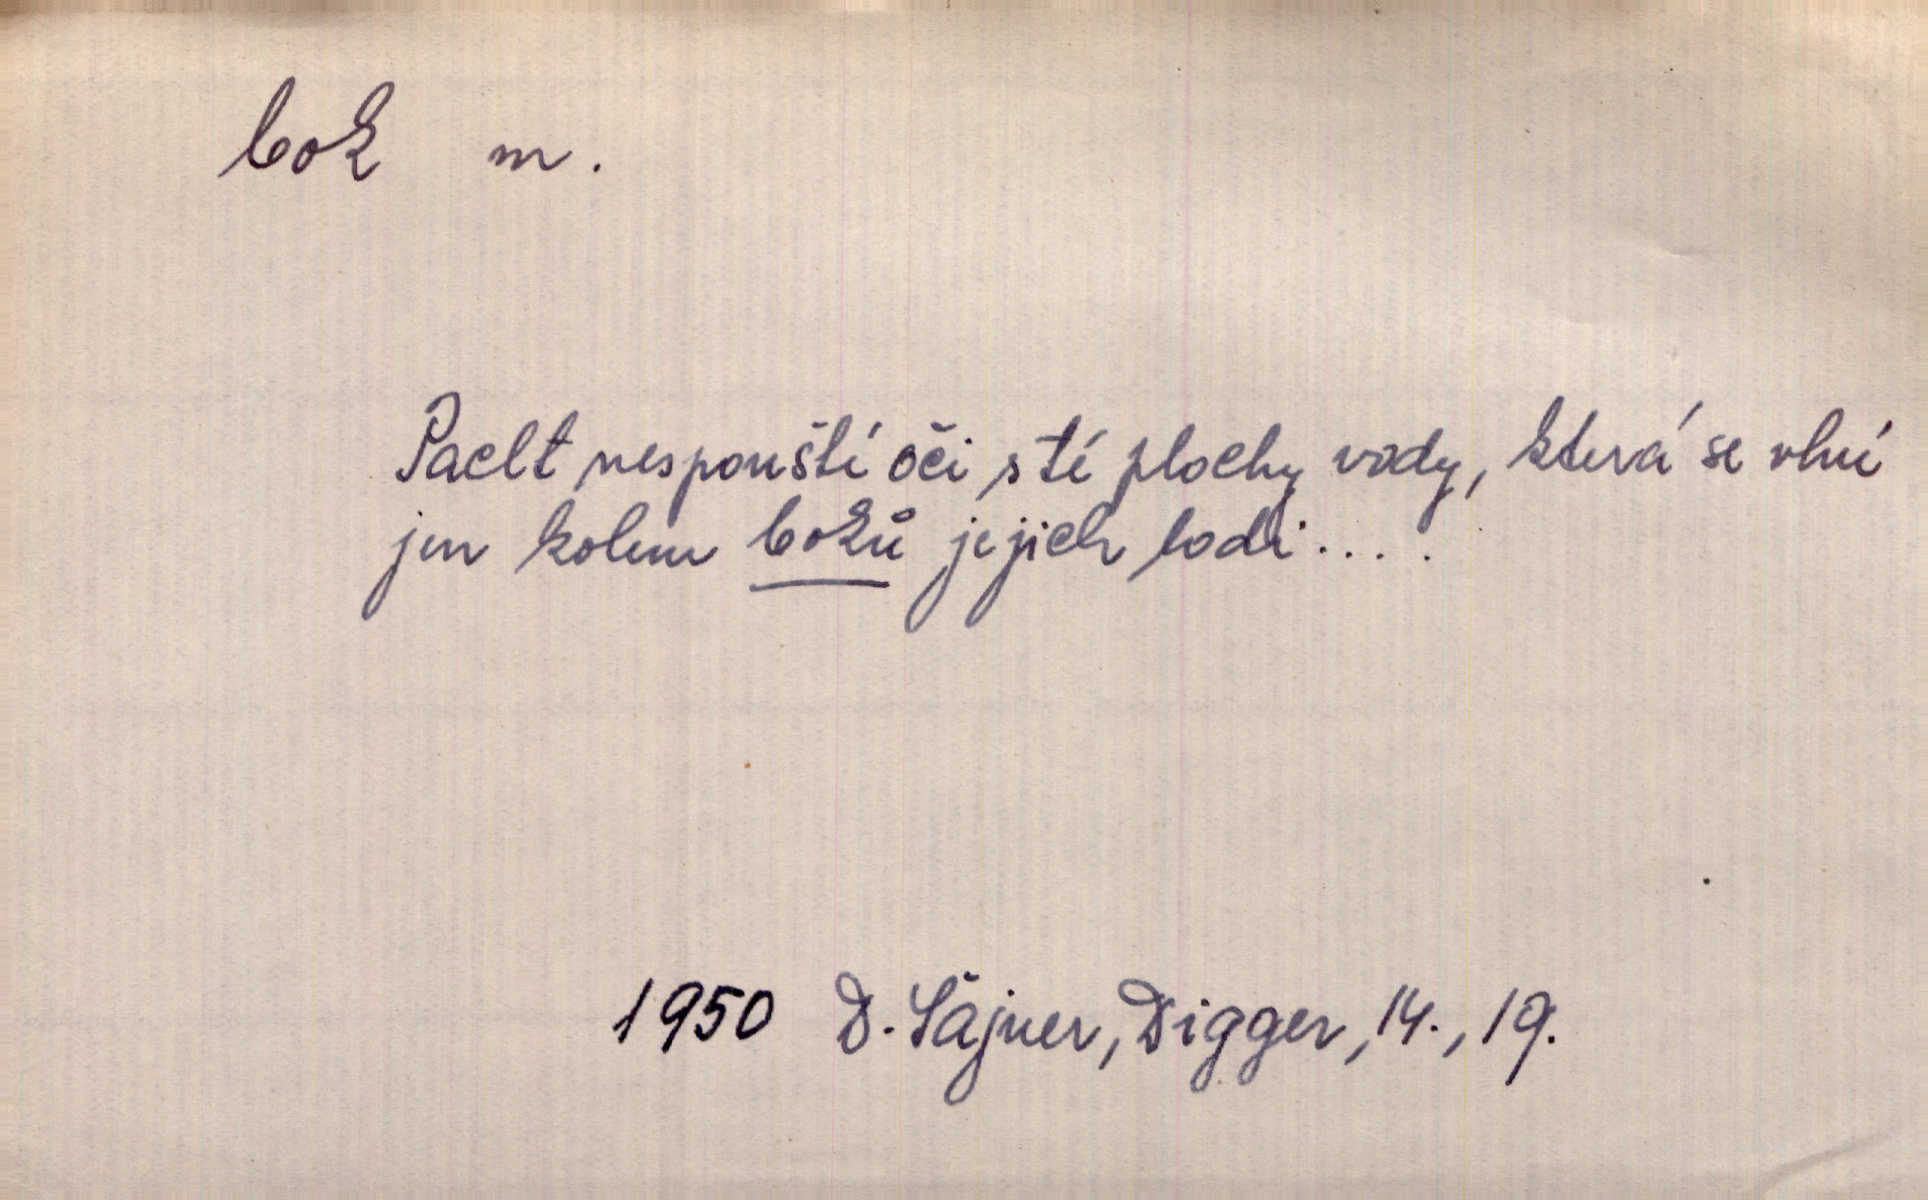 bok m.
Paclt nespouští oči s té plochy vody, která se vlní
jen kolem boků jejich lodi....
1950 D. Šajner, Digger, 14., 19.